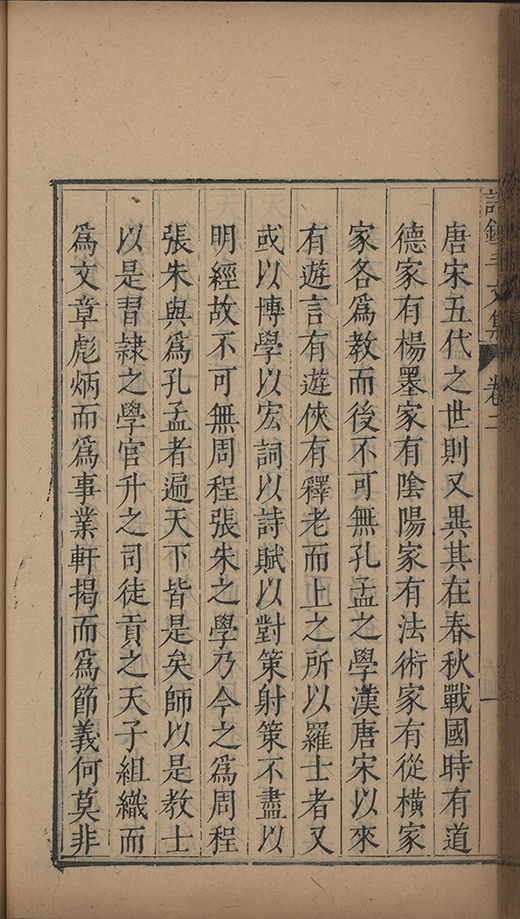 文集 卷二
唐宋五代之世則又異其在春秋戰國時有道
德家有楊墨家有陰陽家有法術家有從横家
家各爲教而後不可無孔孟之學漢唐宋以來
有遊言有遊俠有釋老而上之所以羅士者又
或以博學以宏詞以詩賦以對策射策不盡以
明經故不可無周程張朱之學乃今之爲周程
張朱與爲孔孟者遍天下皆是矣師以是教士
以是習隷之學官升之司徒貢之天子組織而
爲文章彪炳而爲事業軒揭而爲節義何莫非